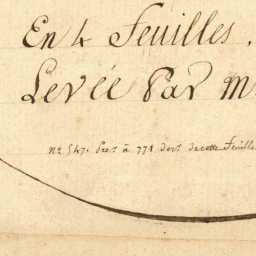 En 4 Feuilles.
Levée Par M
nº 547. Port à 771 dort de cette Feuille